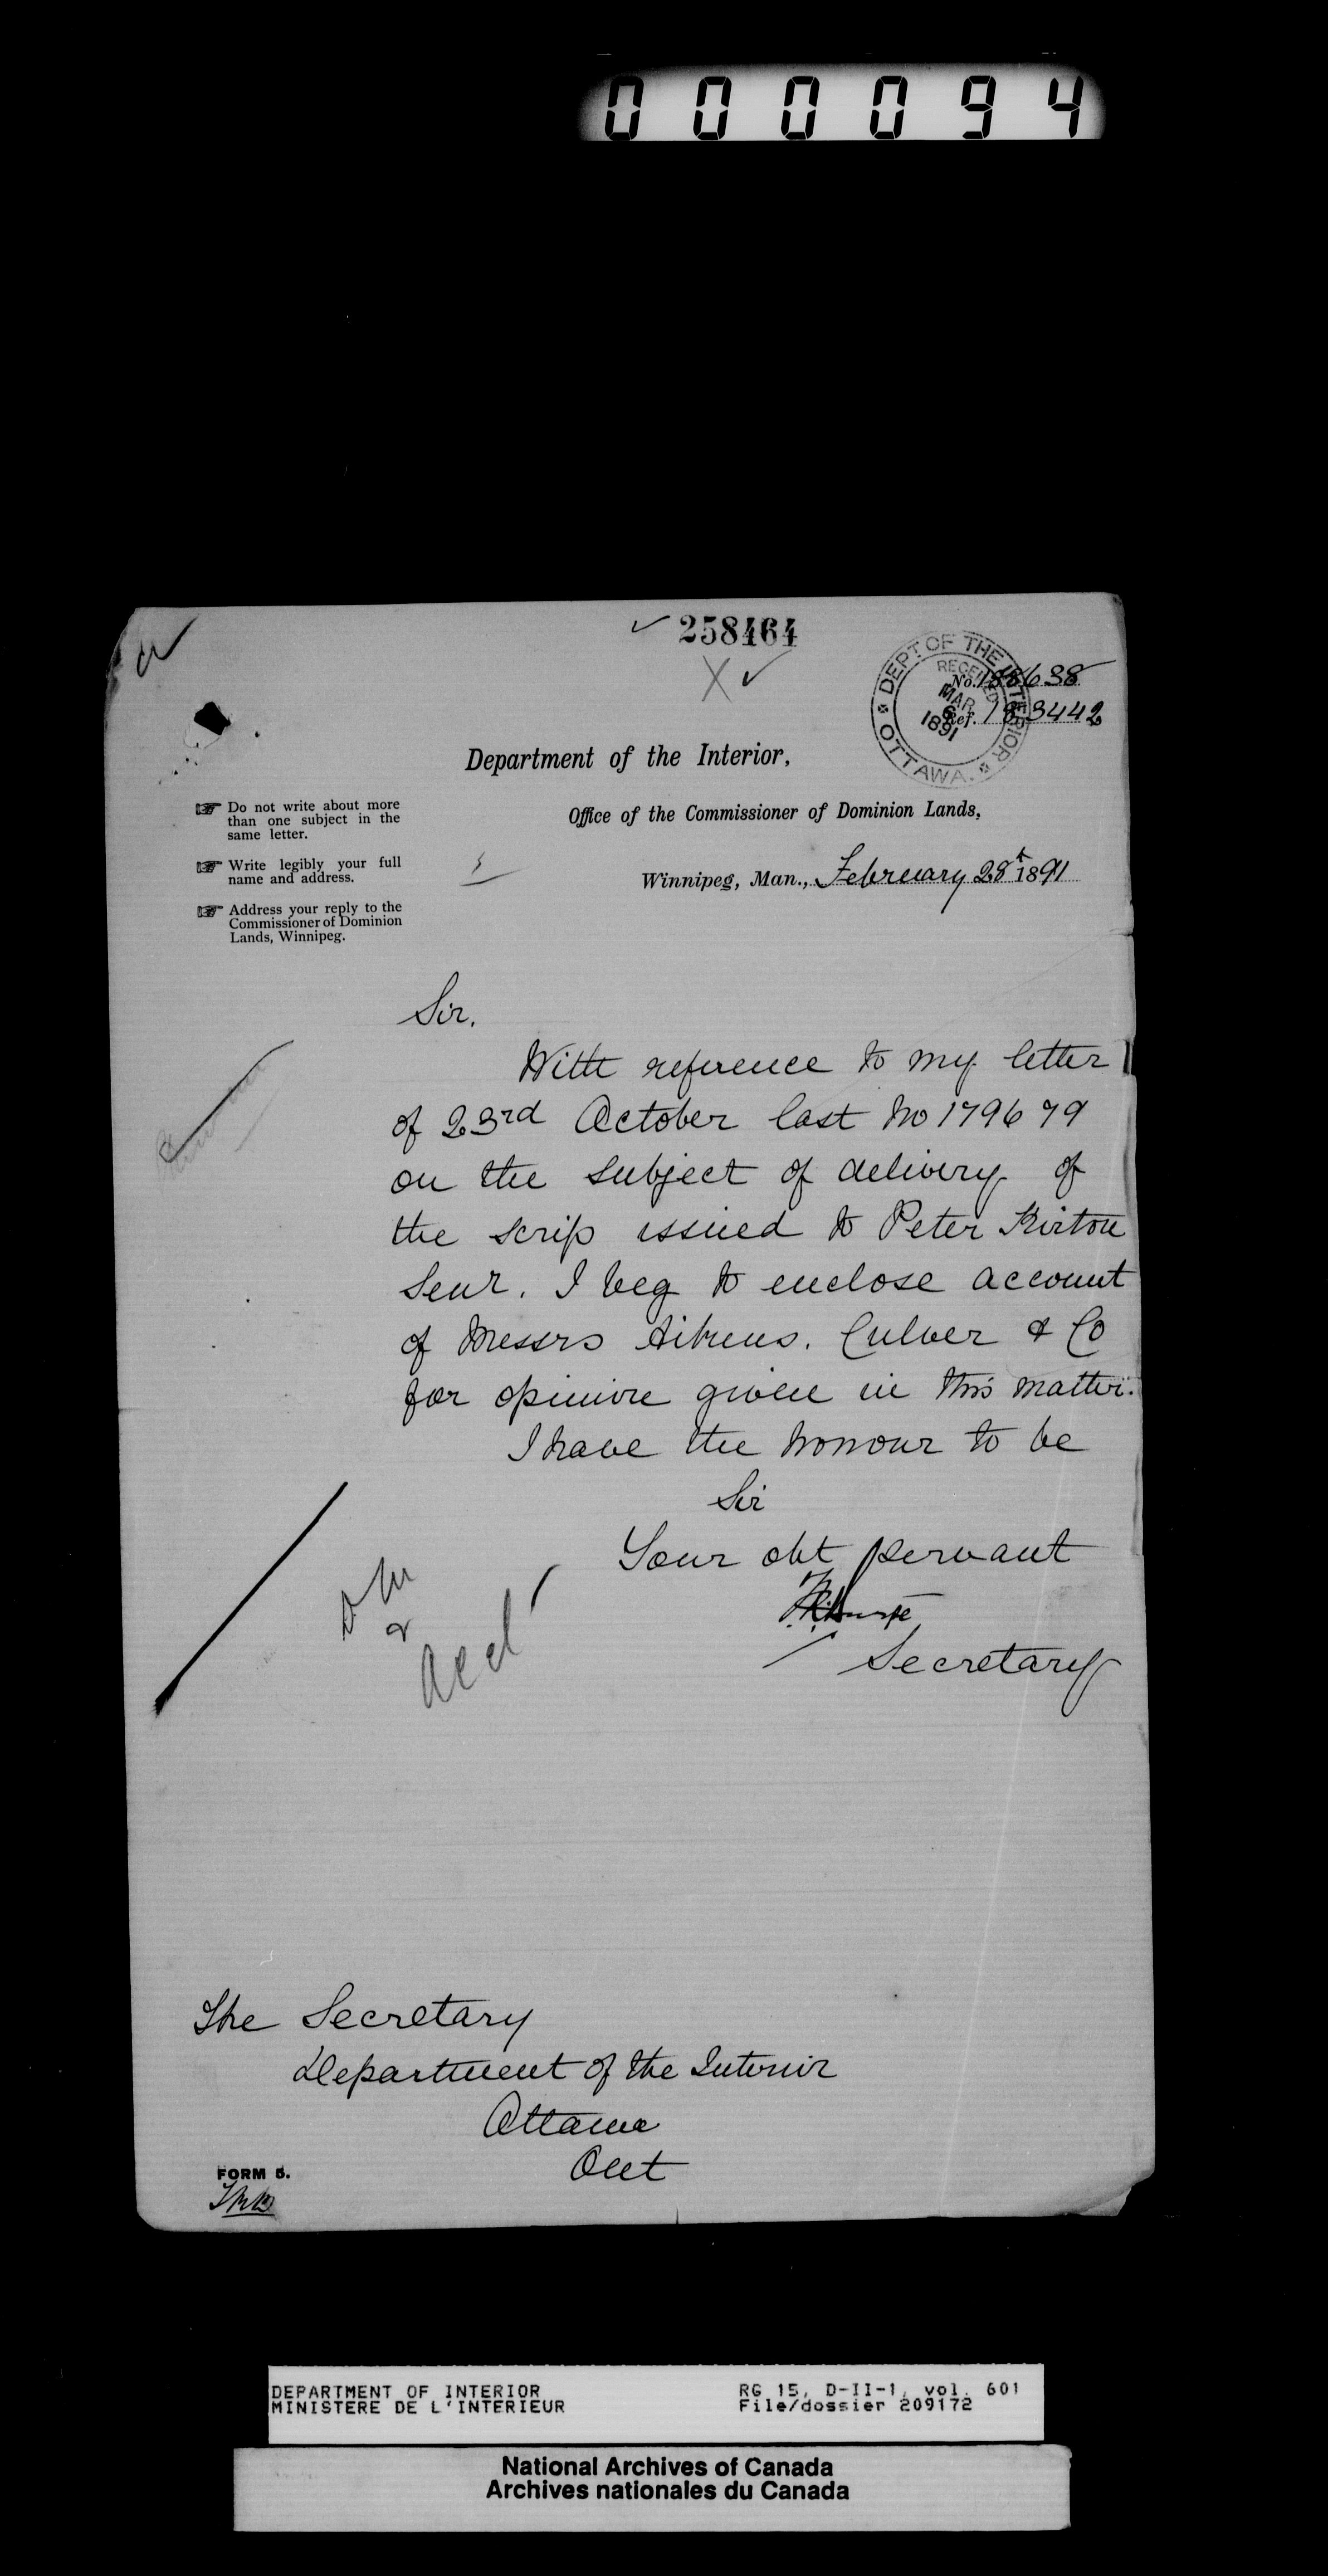 000094
258464
DEPT OF THE INTERIOR
RECEIVED
MAR
6
1891
OTTAWA.
No. 188638
Ref. 183442
Department of the Interior,
Office of the Commissioner of Dominion Lands,
Winnipeg, Man., February 28th 1891
Do not write about more
than one subject in the
same letter.
Write legibly your full
name and address.
Address your reply to the
Commissioner of Dominion
Lands, Winnipeg.
Sir,
With reference to my letter
of 23rd October last No 179679
on the subject of delivery of
the scrip issued to Peter Kirton
Senr. I beg to enclose account
of Messrs Aikens, Culver & Co
for opinion given in this matter.
I have the honour to be
Sir
Your obt servant
Secretary
The Secretary
Department of the Interior
Ottawa
Ont
FORM 5.
DEPARTMENT OF INTERIOR
MINISTERE DE L'INTERIEUR
RG 15, D-II-1, vol. 601
File/dossier 209172
National Archives of Canada
Archives nationales du Canada